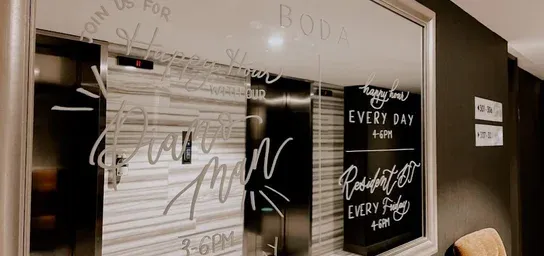 JOIN US FOR
Happy Hour
WITH OUR
Piano
Man
3-6PM
BODA
happy hour
EVERY DAY
4-6PM
Resident DJ
EVERY Friday
4-6PM